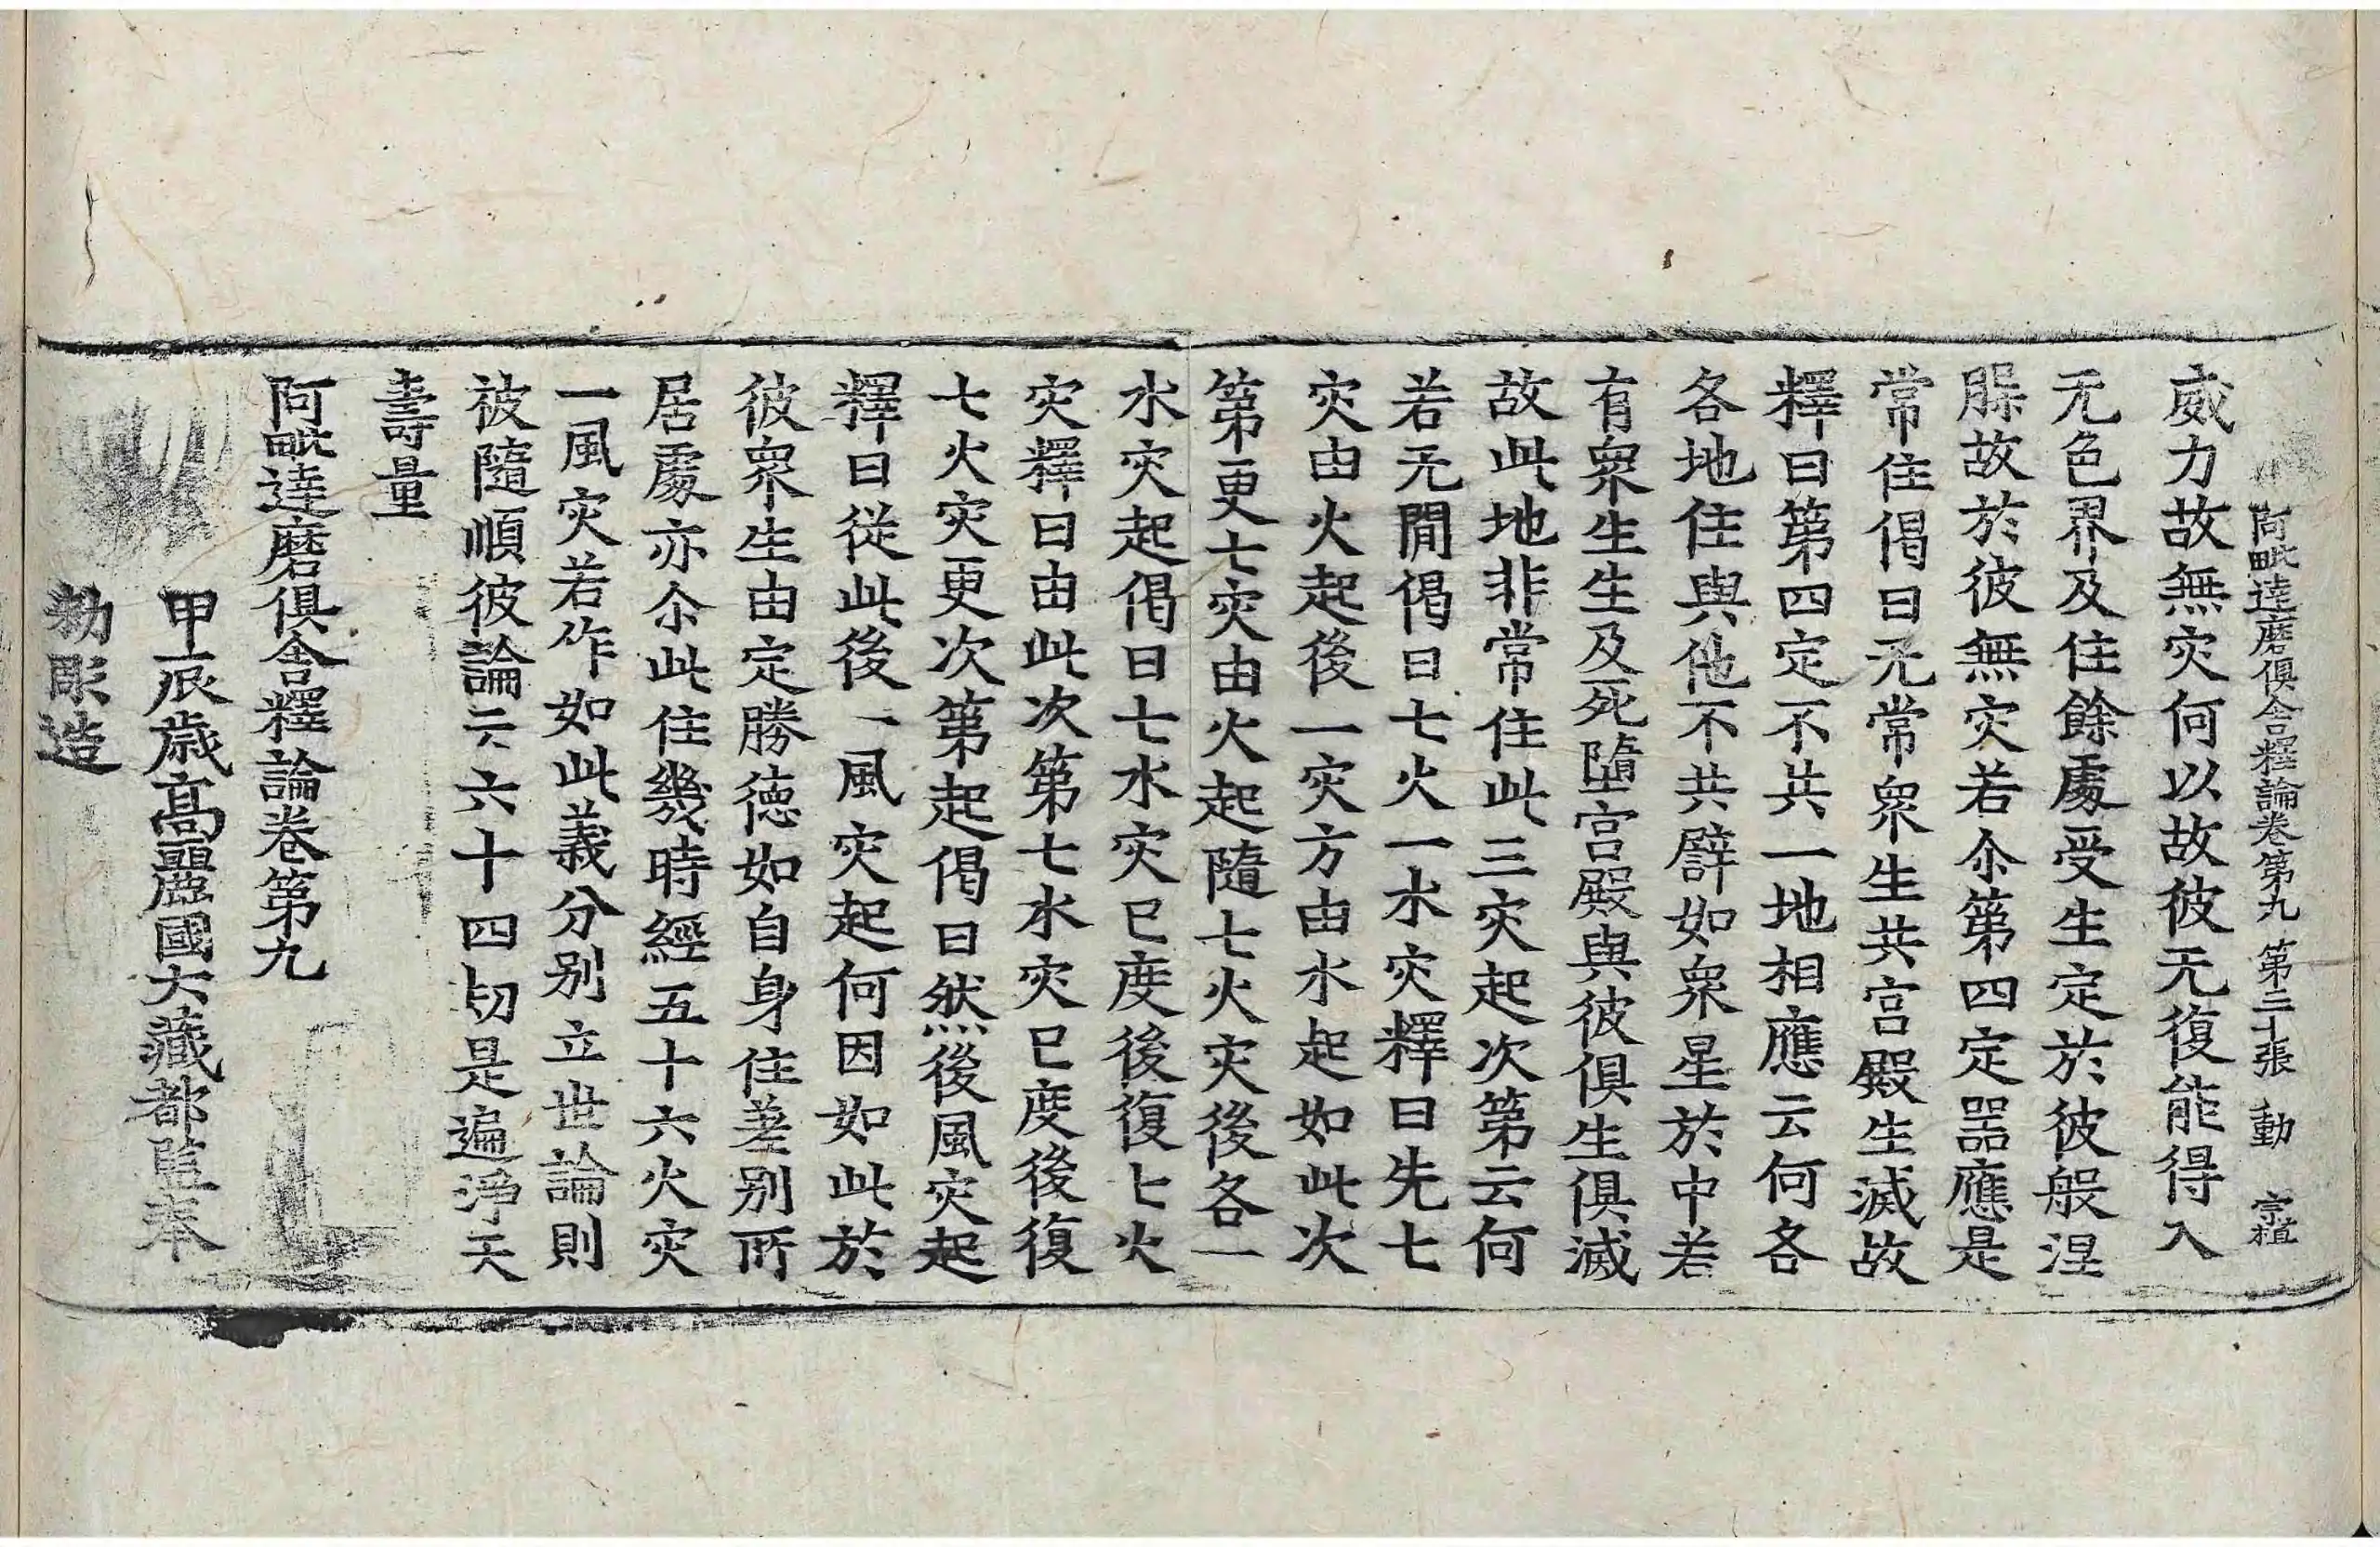 阿毗達磨俱舍釋論卷第九 第二十張 動 宗植
威力故無灾何以故彼无復能得入
无色界及住餘處受生定於彼般涅
脲故於彼無灾若尒第四定噐應是
常住偈曰无常衆生共宫殿生滅故
釋曰第四定不共一地相應云何各
各地住與他不共譬如衆星於中若
有衆生生及死墮宫殿與彼俱生俱滅
故此地非常住此三灾起次第云何
若无間偈曰七火一水灾釋曰先七
灾由火起後一灾方由水起如此次
第更七灾由火起隨七火灾後各一
水灾起偈曰七水灾已度後復七火
灾釋曰由此次第七水灾已度後復
七火灾更次第起偈曰然後風灾起
釋曰從此後一風灾起何因如此於
彼衆生由定勝德如自身住差別所
居處亦尒此住幾時經五十六火灾
一風灾若作如此義分别立世論則
被隨順彼論云六十四刧是遍淨天
壽量
阿毗達磨俱舍釋論卷第九
甲辰歳高麗國大藏都監奉
勑彫造